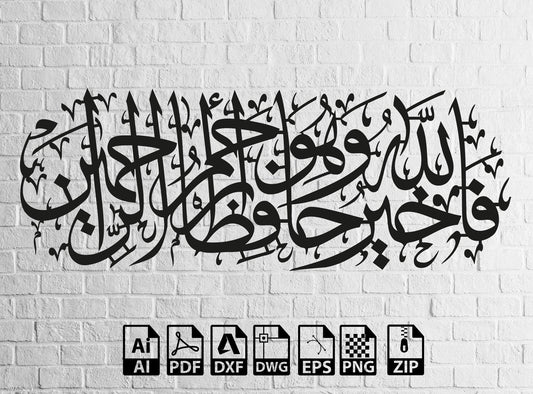 فالله خير حافظا وهو أرحم الراحمين
Ai PDF DXF DWG EPS PNG ZIP
AI